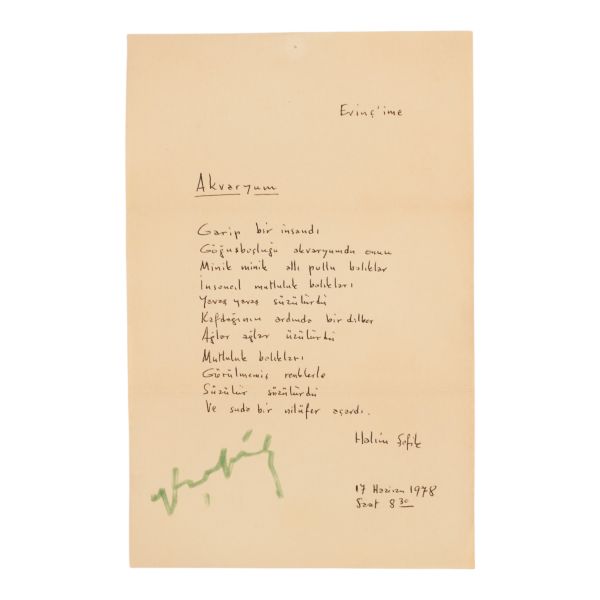 Evinç'ime
Akvaryum
Garip bir insandı
Göğüsboşluğu akvaryumdu onun
Minik minik allı pullu balıklar
İnsancıl mutluluk balıkları
Yavaş yavaş süzülürdü
Kafdağının ardında bir dilber
Ağlar ağlar üzülürdü
Mutluluk balıkları
Görülmemiş renklerle
Süzülür süzülürdü
Ve suda bir nilüfer açardı.
Halim Şefik
17 Haziran 1978
Saat 8 30